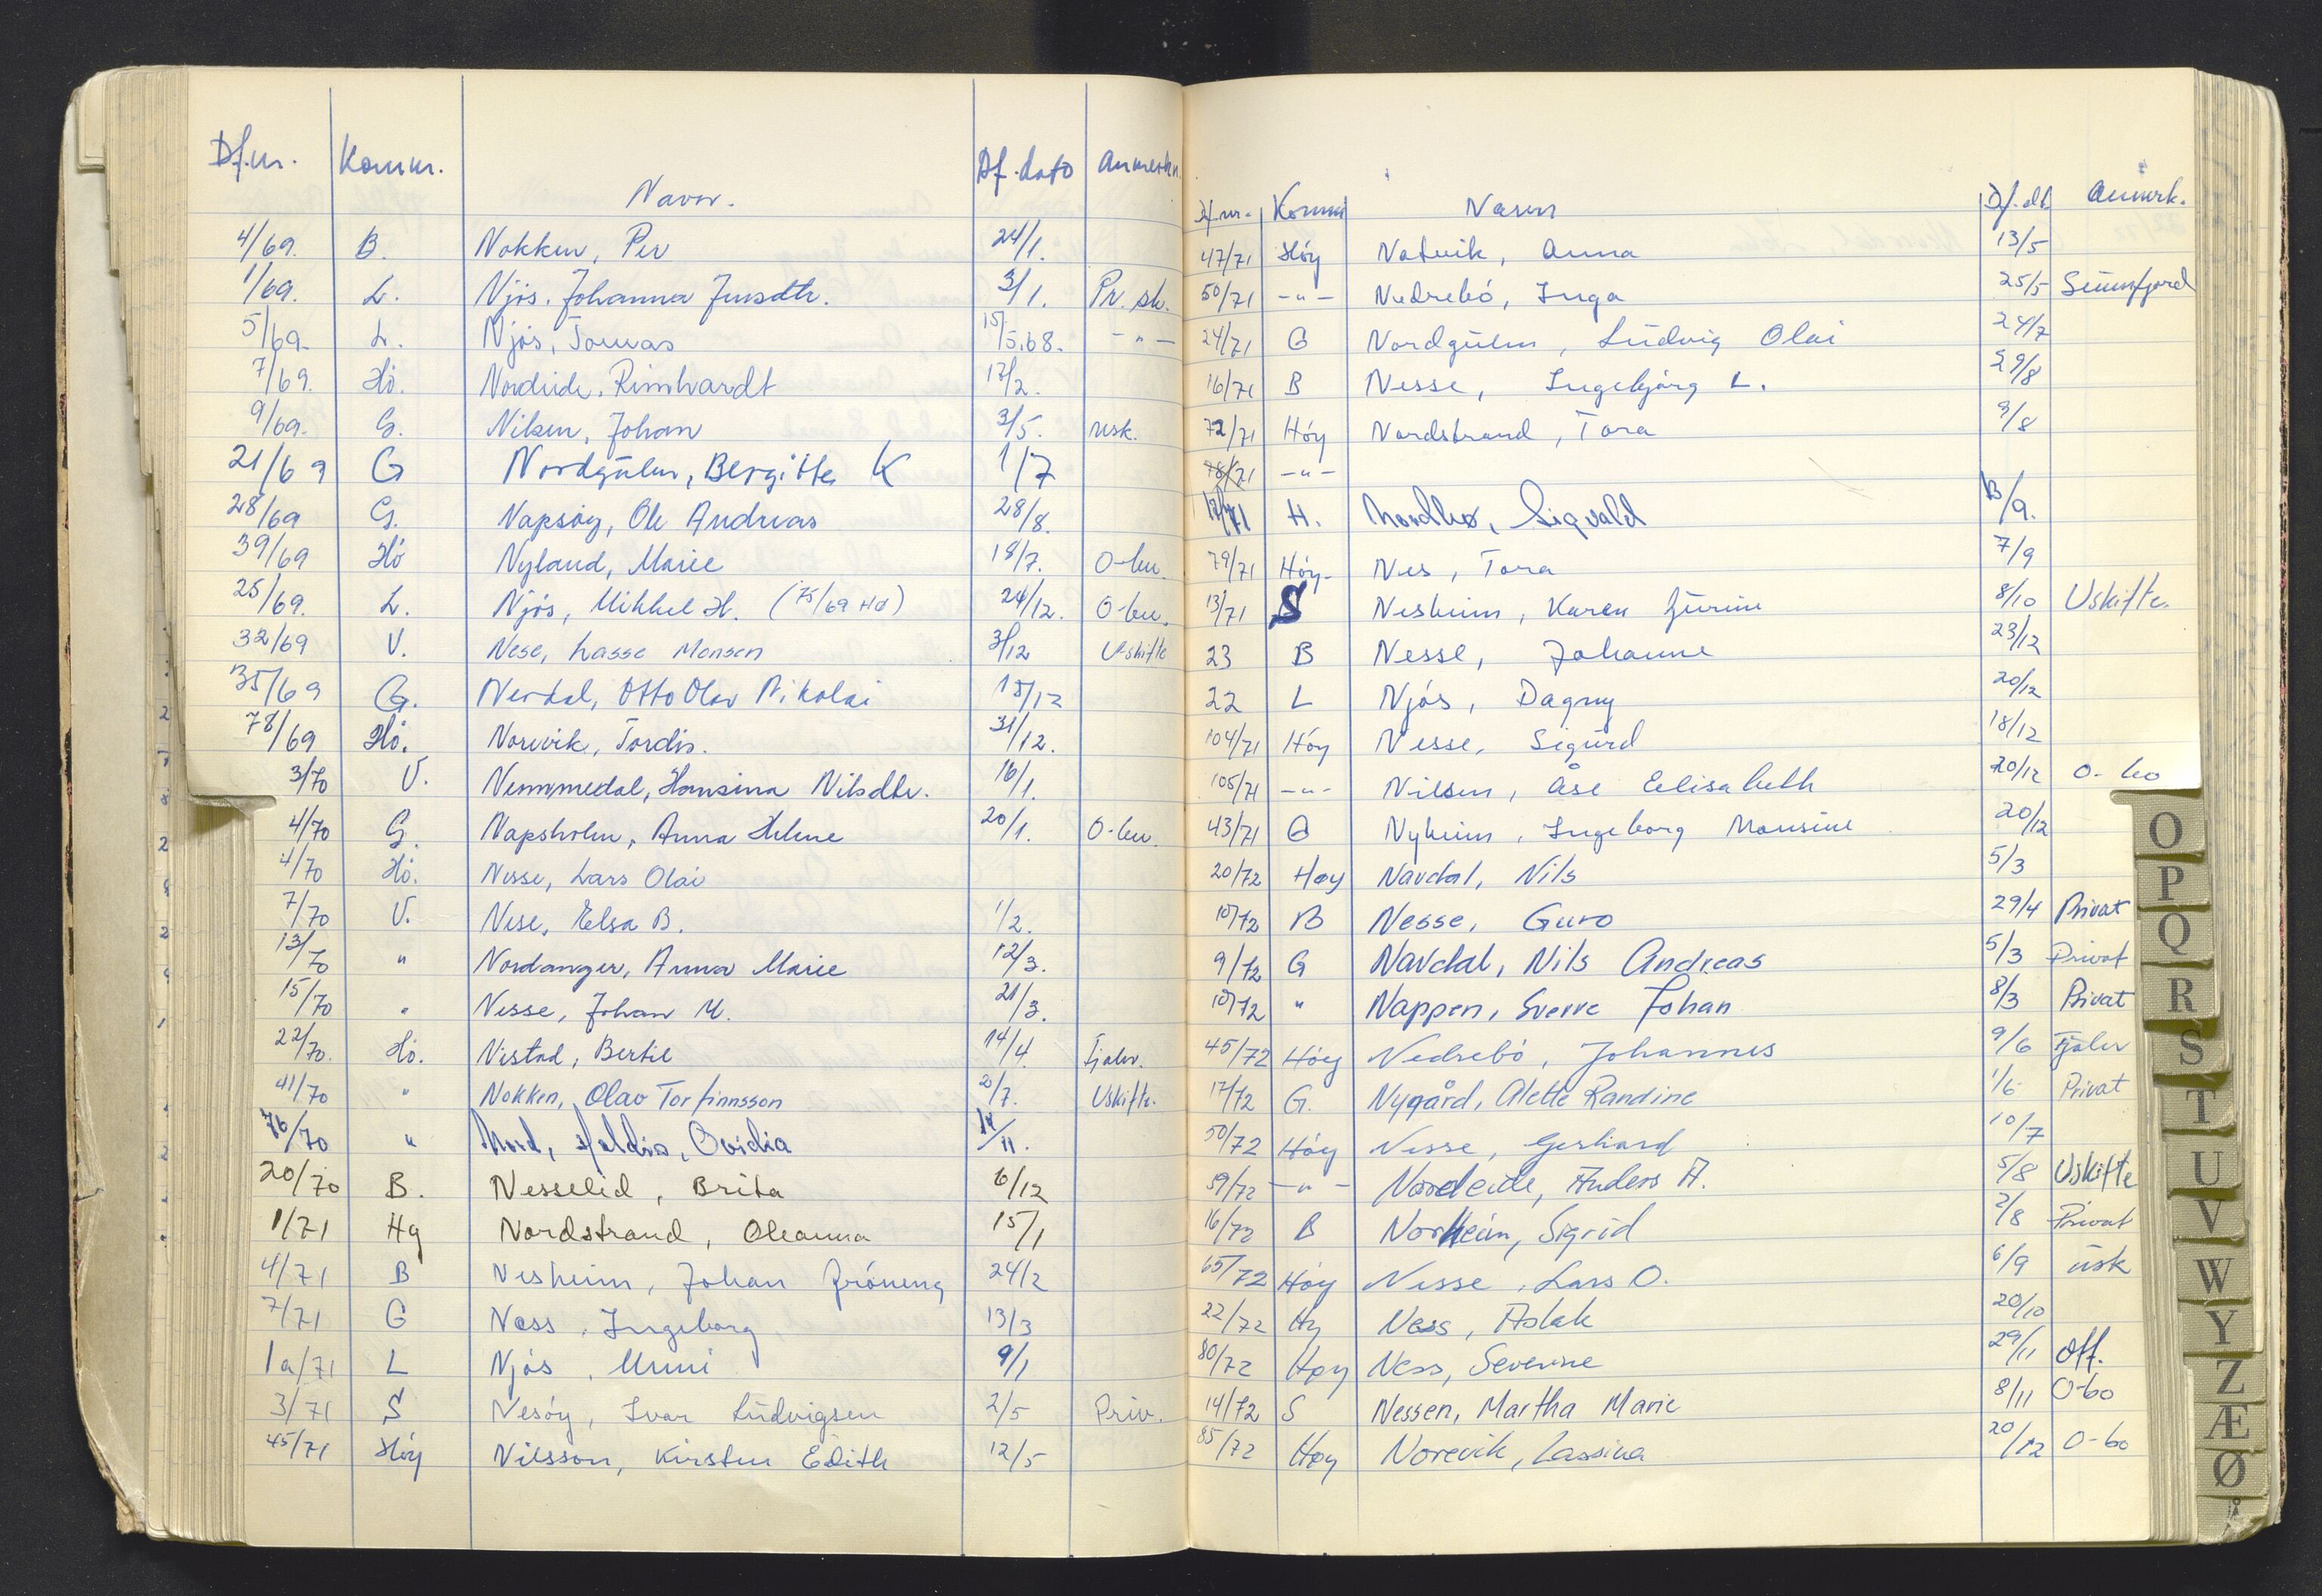 Df.nr. Komm. Navn. Df.dato Anmerkn.
4/69. B. Nokken, Per 24/1.
1/69. L. Njøs. Johanna Jensdtr. 3/1. Pr. sk.
5/69. L. Njøs, Tomas 15/5.68. - " -
7/69. Hö. Nordeide, Rimhardt 17/2.
9/69. G. Nilsen, Johan 3/5. usk.
21/69 G Nordgulen, Bergitte K 1/7
28/69 G. Napsøy, Ole Andreas 28/8.
39/69 Hö Nyland, Marie 18/7. O-bu.
25/69. L. Njøs, Mikkel H. (75/69 Hø) 24/12. O-bu.
32/69 V. Nese, Lasse Monsen 3/12 Uskifte
35/69 G. Nerdal, Otto Olav Nikolai 18/12
78/69 Hö. Norevik, Tordis. 31/12.
3/70 V. Nummedal, Hansina Nilsdtr. 16/1.
4/70 G. Napsholm, Anna Helene 20/1. O-bu.
4/70 Hö. Nesse, Lars Olai
7/70 V. Nese, Elsa B. 1/2.
13/70 " Nordanger, Anna Marie 12/3.
15/70 " Nesse, Johan M. 21/3.
22/70. Hö. Nistad, Bertil 14/4. Fjaler.
41/70 " Nokken, Olav Torfinnsson 2/7. Uskifte.
76/70 " Nord, Haldis, Ovidia 14/11.
20/70 B. Nesselid, Brita 6/12
1/71 Hy Nordstrand, Oleanna 15/1
4/71 B Nesheim, Johan Gröneng 24/2
7/71 G Ness, Ingeborg 13/3
1a/71 L Njøs, Unni 9/1
3/71 S Nesöy, Ivar Ludvigsen 2/5 Priv.
45/71 Höy Nilsson, Kirsten Edith 12/5
Df.nr. Komm Navn Df.dt. Anmrk.
47/71 Höy Natvik, Anna 13/5
50/71 - " - Nedrebö, Inga 25/5 Sunnfjord
24/71 G Nordgulen, Ludvig Olai 24/7
16/71 B Nesse, Ingebjørg L. 29/8
72/71 Höy Nordstrand, Tora 9/8
78/71 - " -
17/71 H. Nordbø, Sigvald 13/9.
79/71 Höy- Nes, Tora 7/9
13/71 S Nesheim, Karen Gurine 8/10 Uskifte.
23 B Nesse, Johanne 23/12
22 L Njøs, Dagny 20/12
104/71 Höy Nesse, Sigurd 18/12
105/71 - " - Nilsen, Åse Elisabeth 20/12 O-bo
43/71 G Nyheim, Ingeborg Monsine 20/12
20/72 Høy Navdal, Nils 5/3
10/72 B Nesse, Guro 29/4 Privat
9/72 G Navdal, Nils Andreas 5/3 Privat
10/72 " Nappen, Sverre Johan 8/3 Privat
45/72 Höy Nedrebö, Johannes 9/6 Fjaler
17/72 G. Nygård, Alette Randine 1/6 Privat
50/72 Höy Nesse, Gerhard 10/7
59/72 - " - Nordeide, Anders A. 5/8 Uskifte
16/72 B Norheim, Sigrid 2/8 Privat
65/72 Höy Nesse, Lars O. 6/9 usk
22/72 Hy Ness, Aslak 20/10
80/72 Høy Ness, Severine 29/11 Off.
14/72 S Nessen, Martha Marie 8/11 O-bo
85/72 Høy Norevik, Lassina 20/12 O-bo
O
P
Q
R
S
T
U
V
W
Y
Z
Æ
Ø